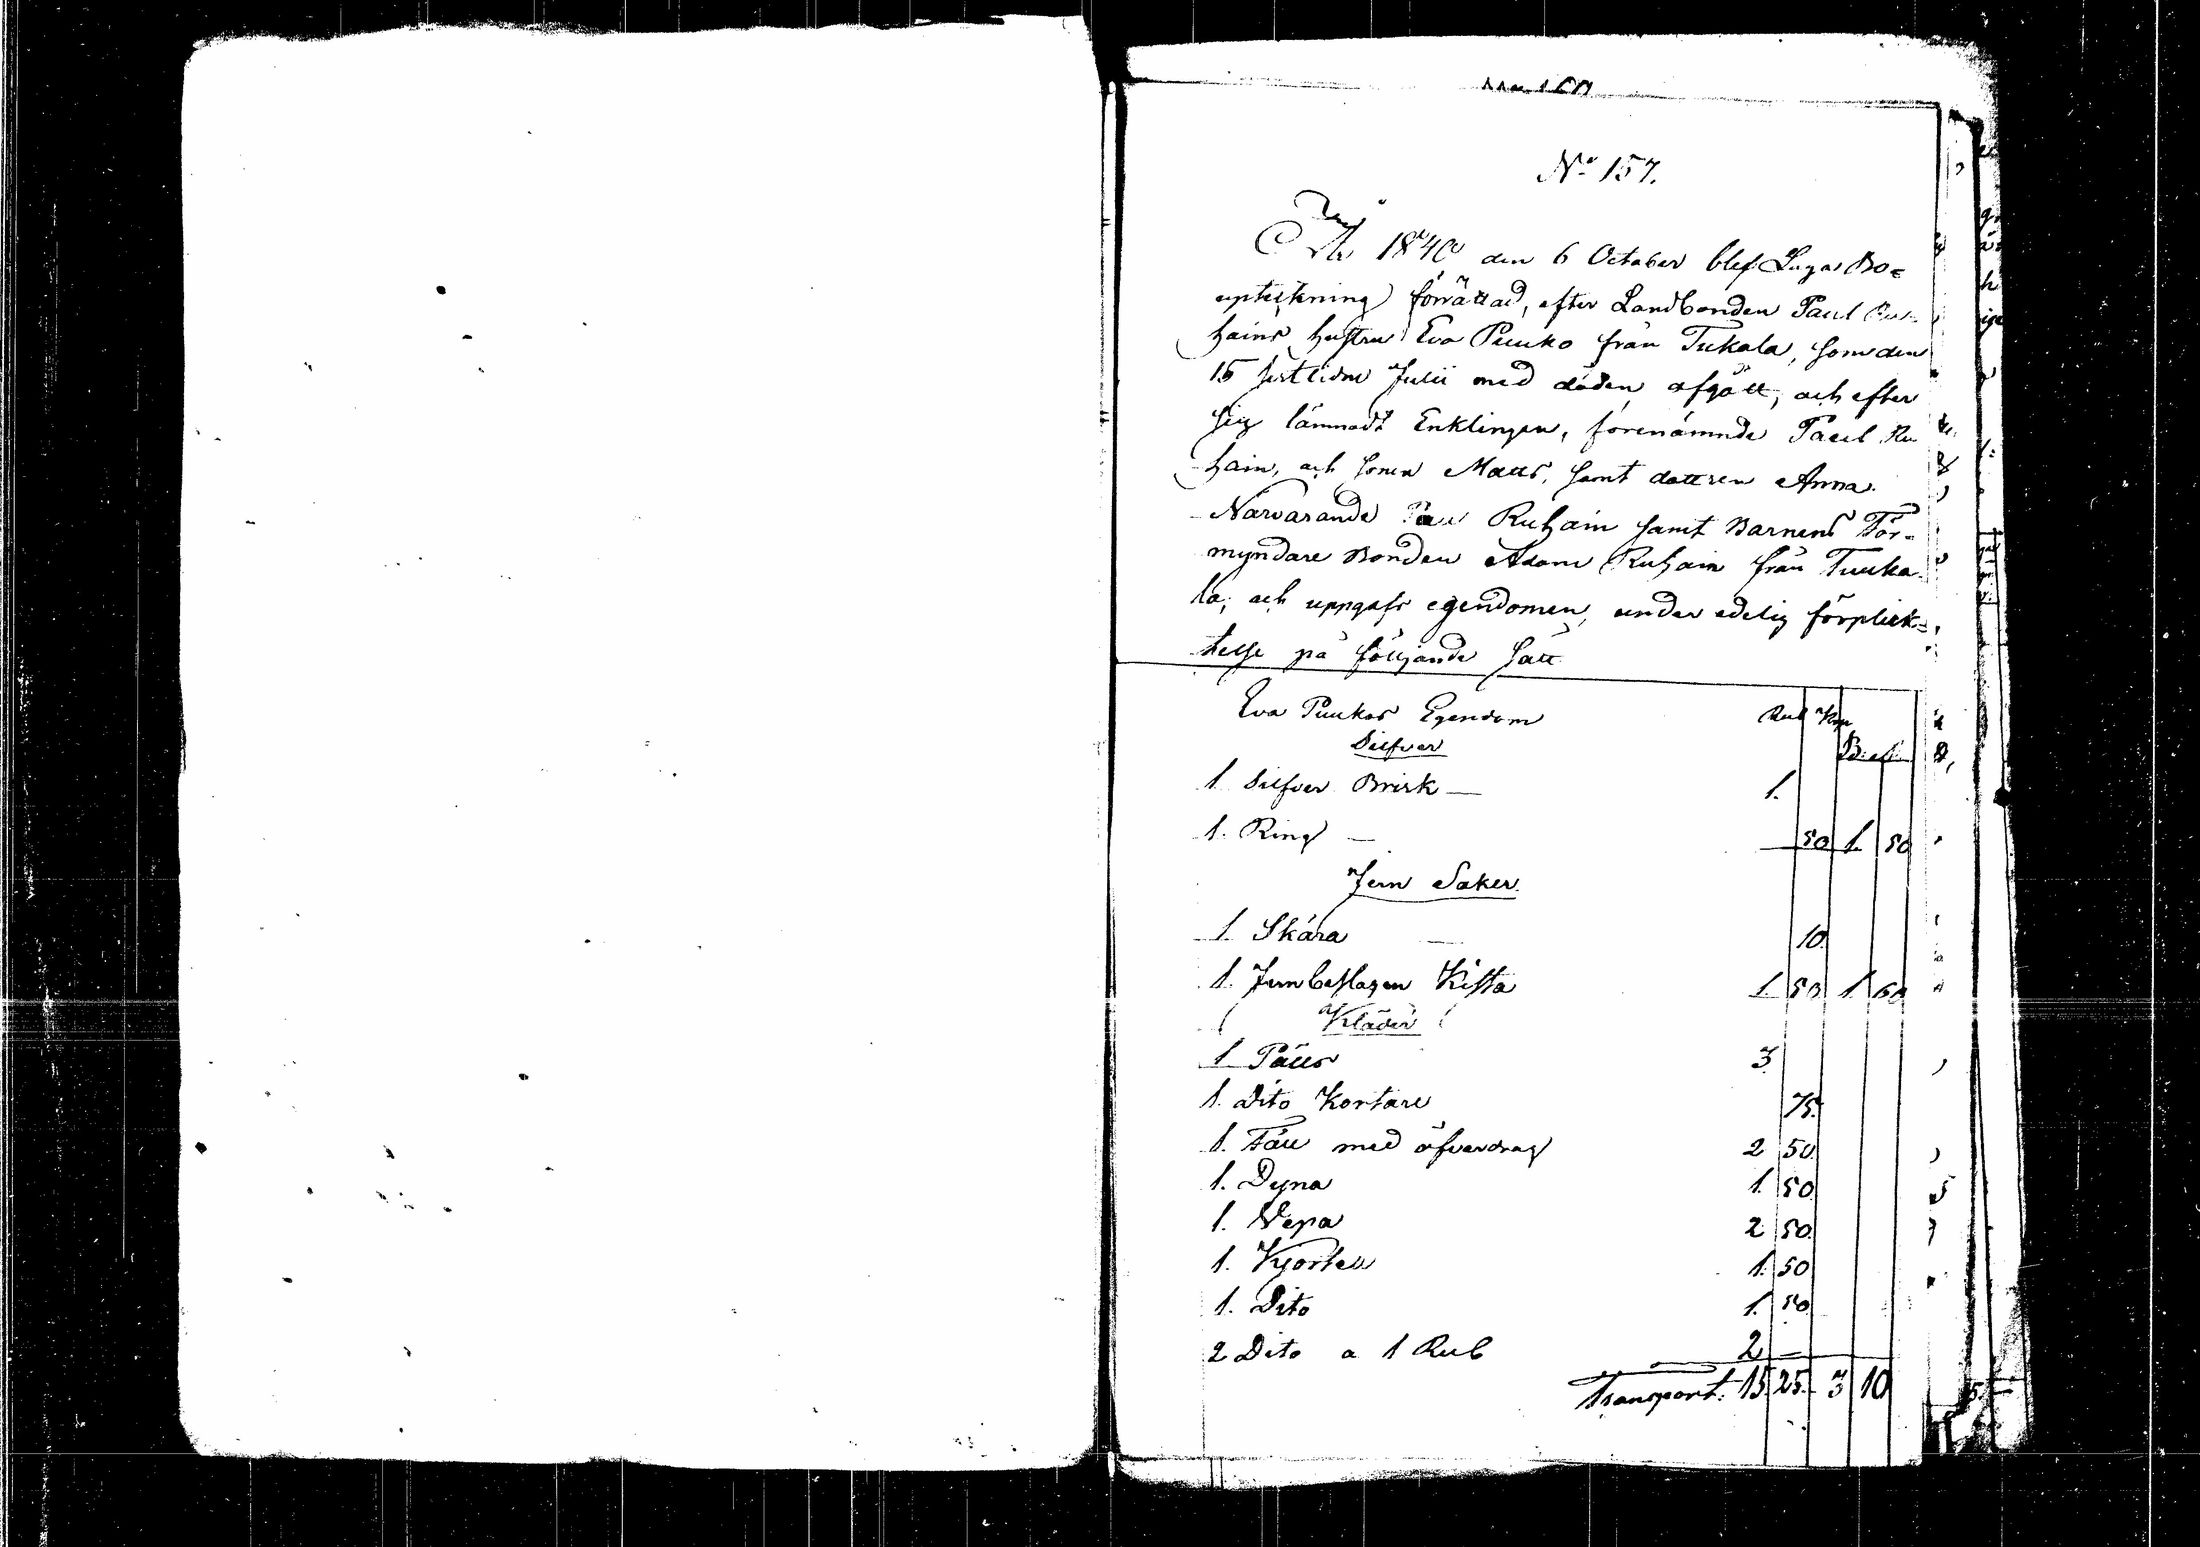 No 157.
År 1840 den 6 October blef Laga Bo=
upteckning förrättad, efter Landbonden Paul Ru-
hains hustru Eva Puuko från Tukala, som den
15 sistlidne Julii med döden afgått, och efter
sig lämnadt Enklingen, förenämnde Paul Ru
hain, och sonen Matts, samt dottren Anna.
Närvarande Paul Ruhain samt Barnens För-
myndare Bonden Adam Ruhain från Tuuka
la, och uppgafs egendomen, under edelig förplick-
telse på följande sätt
Eva Puukos Egendom Rub Kop
Silfver
1 Silfver Brisk — 1.
1. Ring — 50 1. 50
Jern Saker
1. Skära — 10.
1. Jernbeslagen Kista 1. 50 1 60
Kläder
1 Pälls 3
1. Dito Kortare 75.
1. Fäll med öfverdrag 2 50.
1. Dyna 1. 50
1. Vepa 2 50.
1. Kjortell 1. 50
1. Dito 1. 50
2 Dito a 1 Rub 2 —
Transport. 15. 25. 3 10